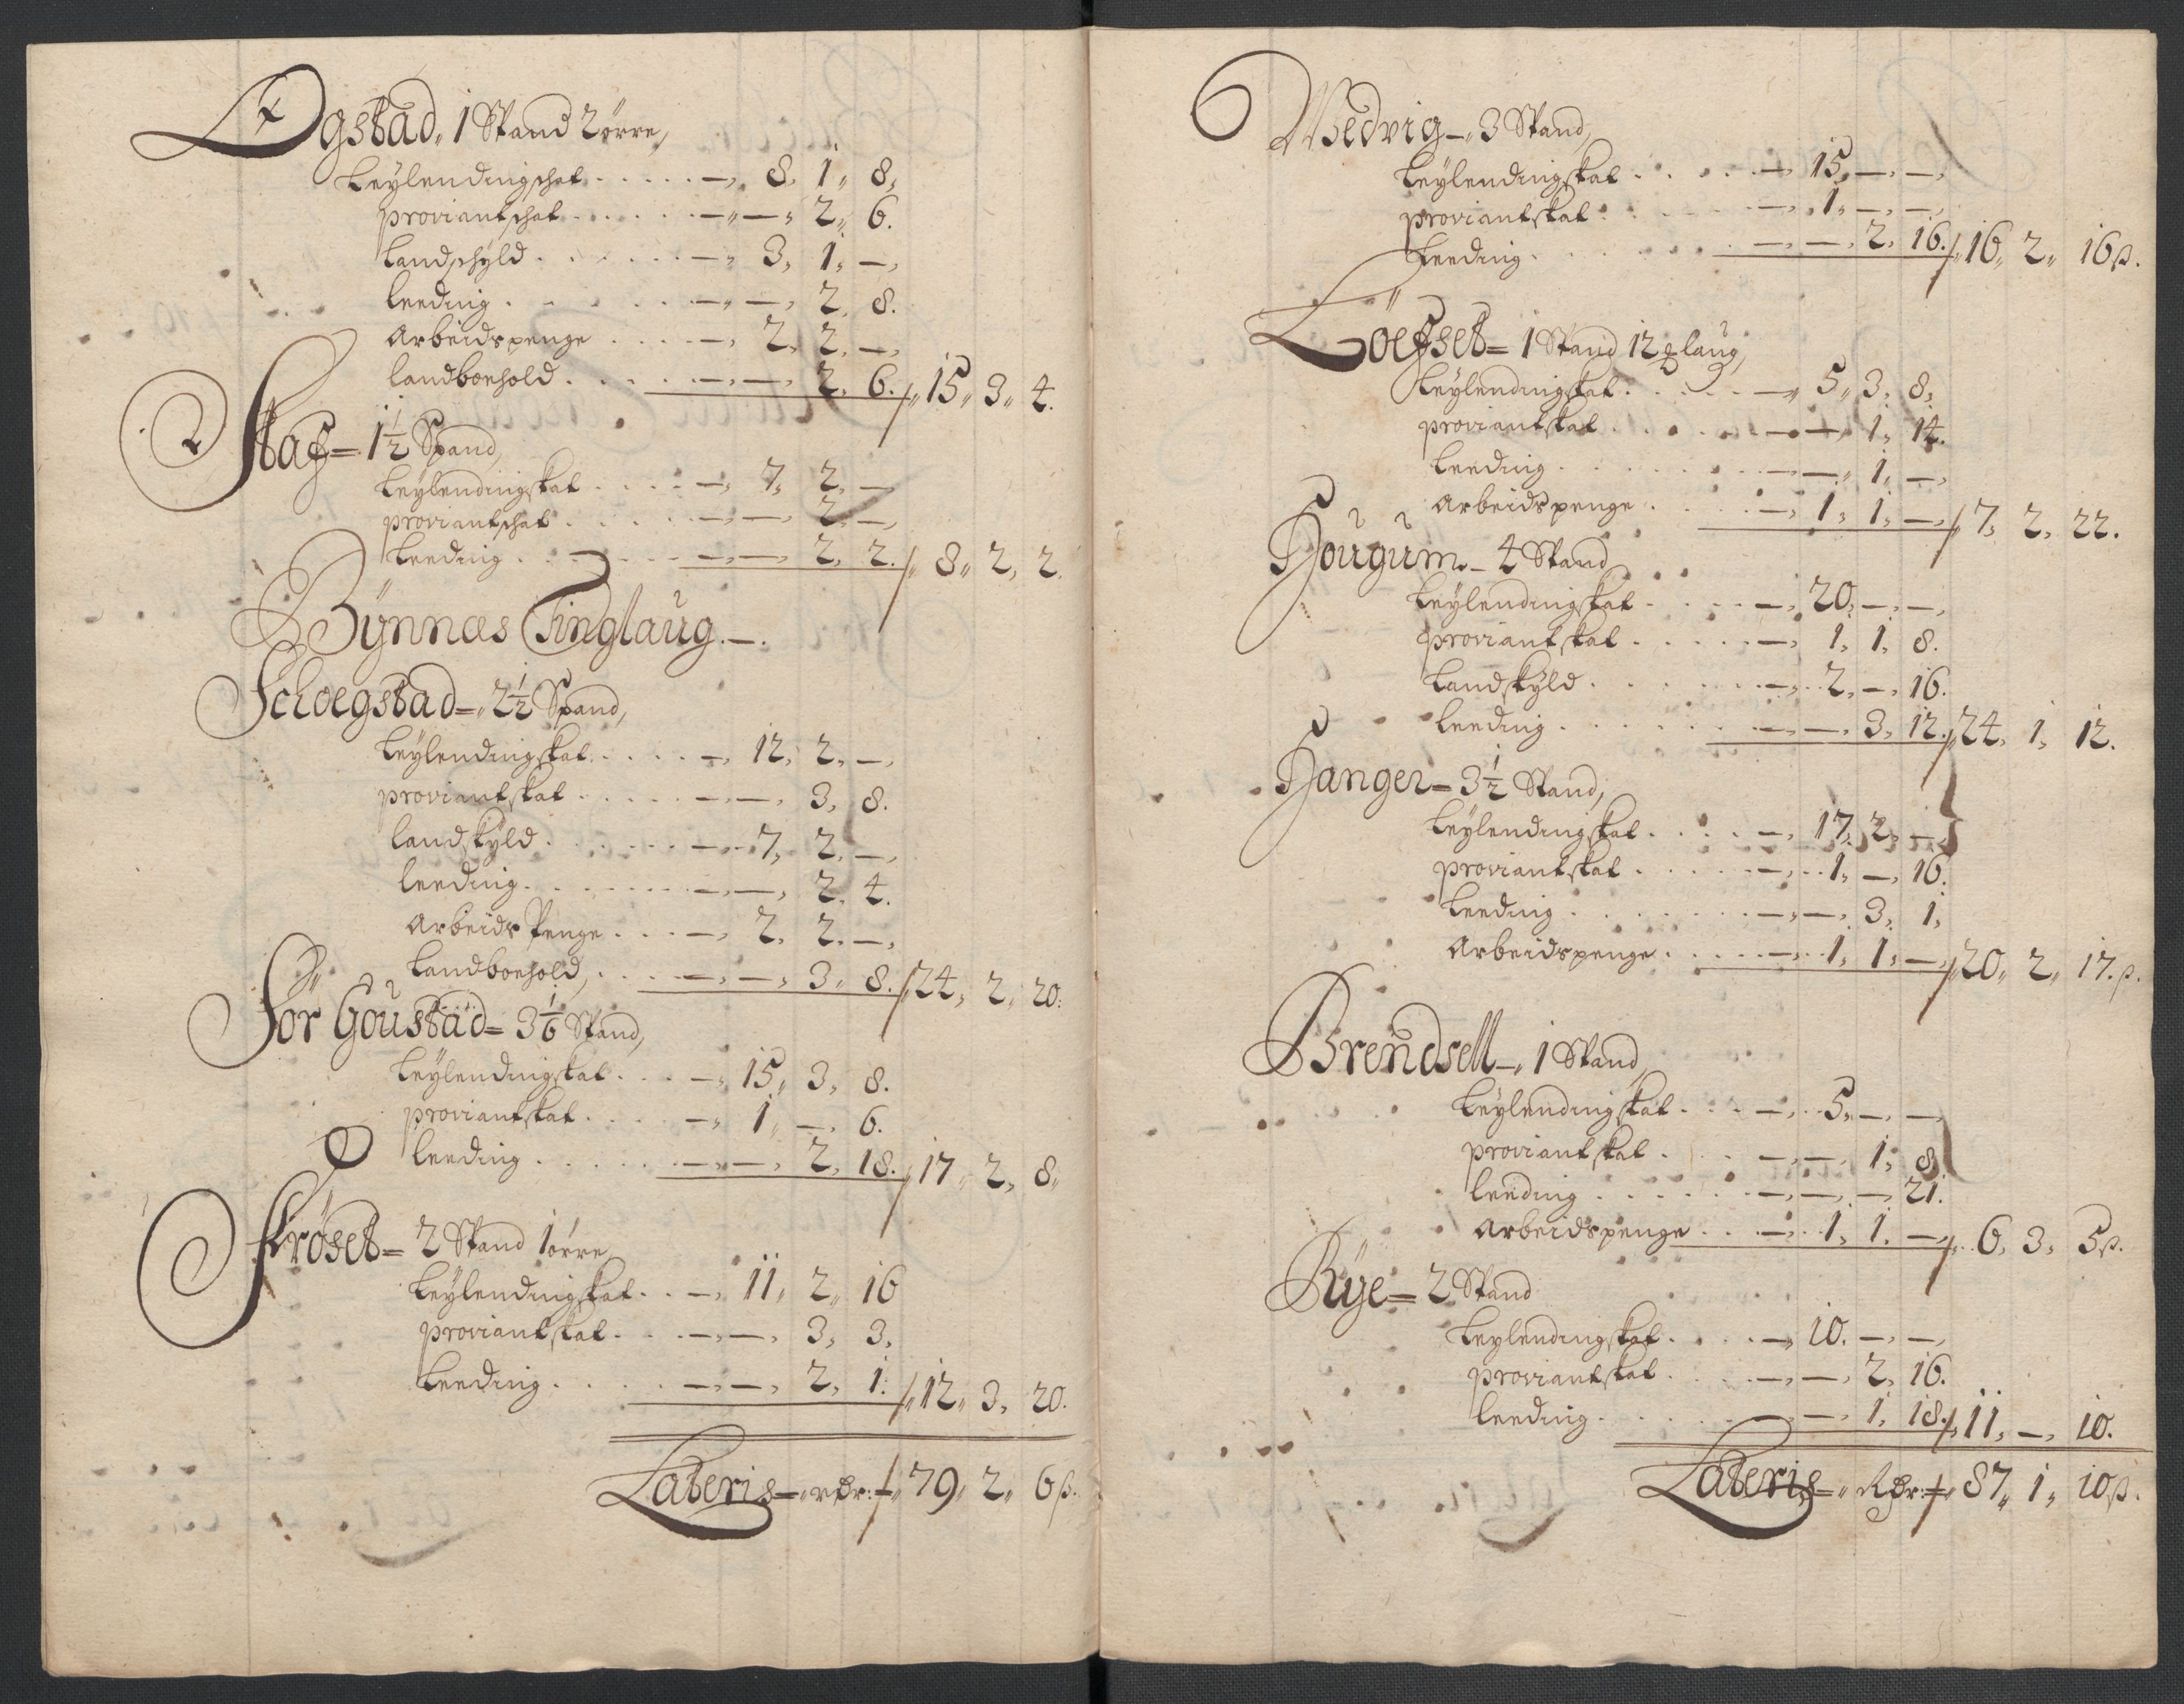 Øgstad 1 Spand 2 ørre,
Leylendingschat . . . . . —, 8, 1, 8,
proviantschat . . . . . — — 2, 6.
Landschyld . . . . . —, 3, 1, —,
Leeding . . . . . — —, 2, 8.
Arbeidspenge . . . . —, 2, 2, —,
Landboehold . . . . . — — 2, 6. 15, 3, 4.
Staf = 1 1/2 Spand,
Leylendingskat . . . . —, 7, 2, —
proviantschat . . . . . — —, 2, —,
Leeding . . . . . — —, 2, 2. 8, 2, 2.
Bÿnnæs Tinglaug. —.
Schoegstad = 2 1/2 Spand,
Leylendingskat . . . . —, 12, 2, —,
proviantskat . . . . . — —, 3, 8.
Landskÿld . . . . . —, 7, 2, —,
Leeding . . . . . — —, 2, 4.
Arbeids Penge . . . —, 2, 2, —,
Landboehold, . . . . — —, 3, 8. 24, 2, 20.
Sør Goustad = 3 1/6 Spand,
Leylendingskat . . . —, 15, 3, 8.
proviantskat . . . . —, 1, —, 6.
Leeding . . . . . — —, 2, 18. 17, 2, 8,
Skrøset = 2 Spand 1 ørre
Leylendingskat . . —, 11, 2, 16
proviantskat . . . — —, 3, 3,
Leeding . . . . — —, 2, 1. 12, 3, 20.
Lateris = rdr: 79, 2, 6 ß.
Wedvig —, 3 Spand,
Leylendingskat . . . . —, 15, —, —,
proviantskat . . . . . —, 1, —, —,
Leeding . . . . . — —, 2, 16. 16, 2, 16 ß.
Löefset = 1 Spand 12 laug,
Leylendingskat . . . . —, 5, 3, 8,
proviantskat . . . . . — —, 1, 14.
Leeding . . . . . — —, 1, —,
Arbeidspenge . . . . —, 1, 1, —, 7, 2, 22.
Hougum — 4 Spand
Leylendingskat . . . . —, 20, —, —,
proviantskat . . . . —, 1, 1, 8.
Landskÿld . . . . . —, 2, —, 16.
Leeding . . . . . — —, 3, 12. 24, 1, 12.
Hanger = 3 1/2 Spand,
Leylendingskat . . . . —, 17, 2, —,
proviantskat . . . . . —, 1, —, 16.
Leeding . . . . . — —, 3, 1,
Arbeidspenge . . . . —, 1, 1, —, 20, 2, 17. ß.
Brendsell —, 1 Spand,
Leylendingskat . . . —, 5, —, —,
proviantskat . . . . — —, 1, 8.
Leeding . . . . . — —, —, 21.
Arbeidspenge . . . —, 1, 1, —, 6, 3, 5 ß.
Rÿe = 2 Spand
Leylendingskat . . . . —, 10. —, —,
proviantskat . . . . — —, 2, 16.
Leeding . . . . . — —, 1, 18. 11, —, 10.
Lateris = Rdr: 87, 1, 10 ß.